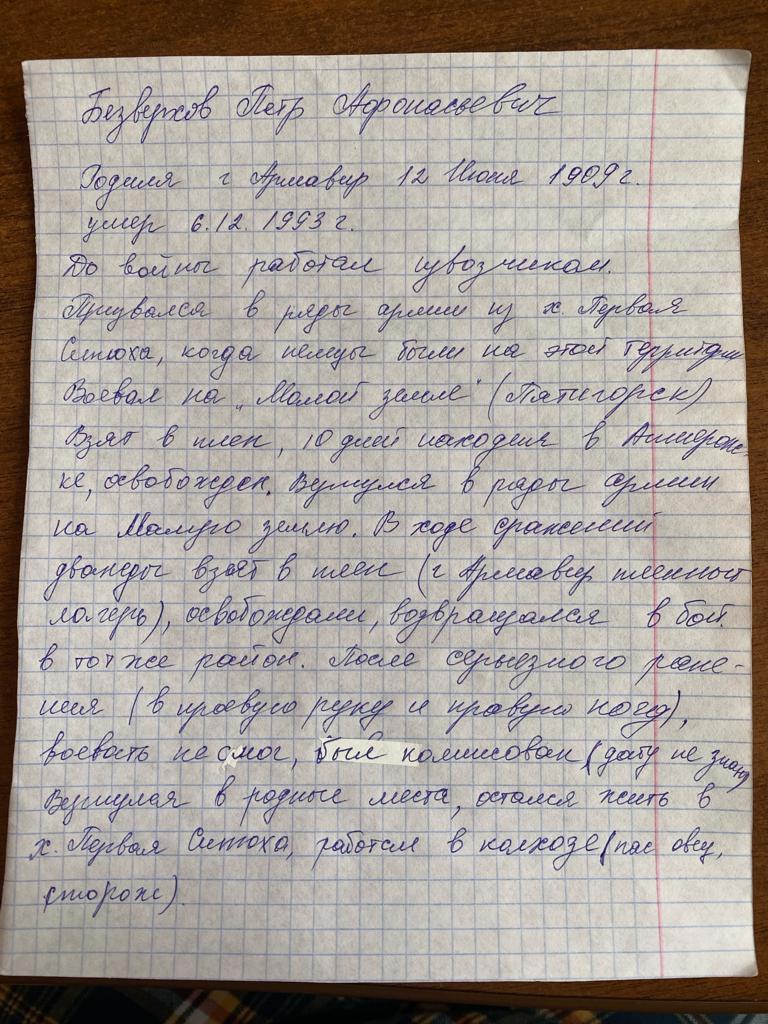 Безверхов Петр Афонасьевич
Родился г Армавир 12 Июня 1909 г.
умер 6.12. 1993 г.
До войны работал извозчиком.
Призвался в ряды армии из х. Первая
Синюха, когда немцы были на этой территории
Воевал на „Малой земле" (Пятигорск)
Взят в плен, 10 дней находился в Апшеронс-
ке, освобожден. Вернулся в ряды армии
на Малую землю. В ходе сражений
дважды взят в плен (г Армавир пленный
лагерь), освобождали, возвращался в бой.
в тот же район. После серьезного ране-
ния (в правую руку и правую ногу),
воевать не смог, был комисован (дату не знаю)
Вернулся в родные места, остался жить в
х. Первая Синюха, работал в колхозе (пас овец,
сторож).